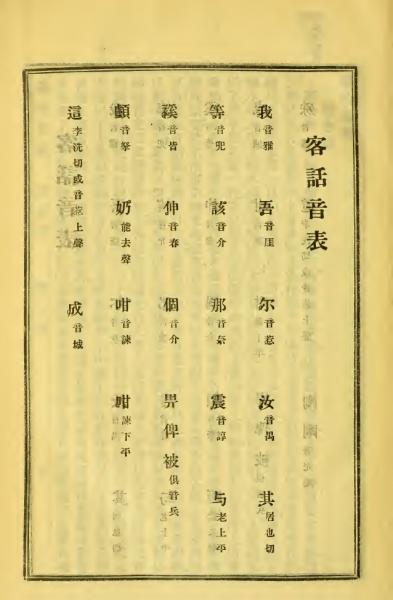 客話音表
我音雅 吾音厓 尔音惹 汝音禺 其居也切
等音兜 該音介 那音奈 震音諄 与老上平
豯音皆 伸音春 個音介 畀俾被俱音兵
顫音拏 奶能去聲 咁音諫 咁諫下平
這李洗切或音 上聲 成音城